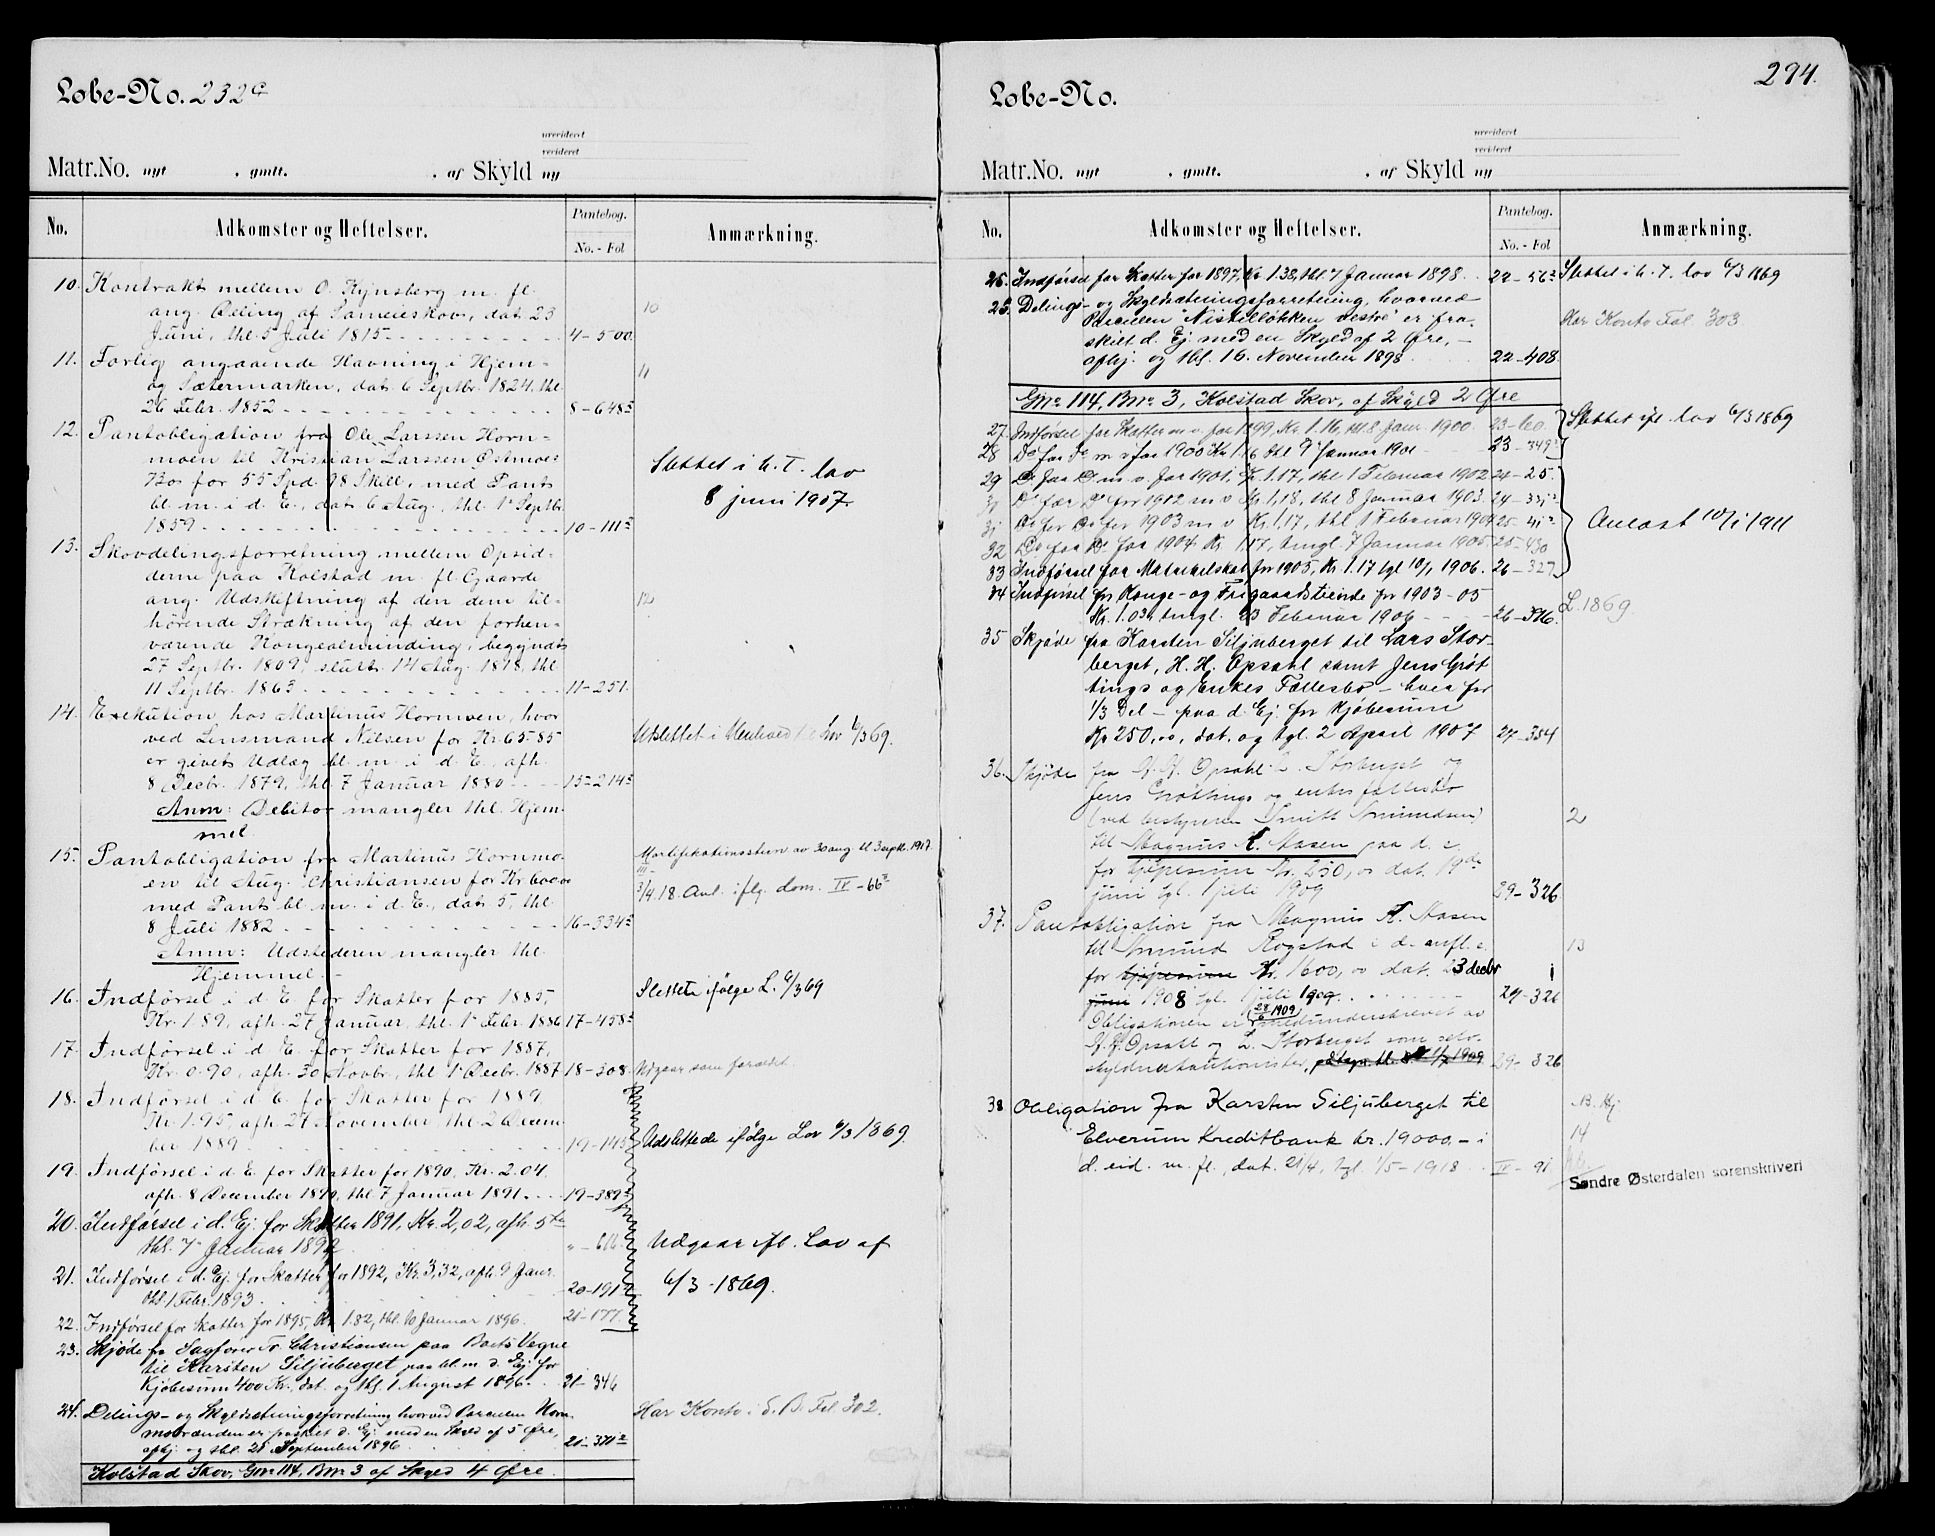 Løbe-No. 232a
urevideret
revideret
Matr.No. nyt . gmlt. . af Skyld ny
No. Adkomster og Heftelser. Pantebog. No. - Fol Anmærkning.
10. Kontrakt mellem O. Kynsberg m. fl.
ang. Deling af Sameieskov, dat. 23
Juni, thl. 5 Juli 1815 4-500. 10
11. Forlig angaaende Havning i Hjem=
og Sætermarken, dat. 6 Septbr. 1824, thl.
26 Febr. 1852 8-648 11
12. Pantobligation fra Ole Larssen Horn=
moen til Kristian Larssen Østmoes
Bo for 55 Spd. 78 Skill. med Pant
bl. m. i d. E., dat. 6 Aug., thl. 1 Septbr.
1859 10-111
Slettet i h. T. lov
8 juni 1907.
13. Skovdelingsforretning mellem Opsid=
derne paa Kolstad m. fl. Gaarde
ang. Udskiftning af den dem til=
hørende Strækning af den forhen=
værende Kongealminding, begyndt
27 Septbr. 1809, slutt. 14 Aug. 1818, thl.
11 Septbr. 1863 11-251. 12
14. Exekution hos Martinus Hornmoen, hvor
ved Lensmand Nilsen for Kr. 65.85
er givet Udlæg bl. m. i d. E., afh.
8 Decbr. 1879, thl. 7 Januar 1880 15-214
Udslettet i Henhold til Lov 6/3 69.
Anm: Debitor mangler thl. Hjem=
mel.
15. Pantobligation fra Martinus Hornmo=
en til Aug. Christiansen for Kr. 600.00
med Pant bl. m. i d. E., dat. 5, thl.
8 Juli 1882 16-334
Mortifikationsstevn. av 30 aug. tl. 3 septb. 1917.
3/4 18. Avl. iflg. dom. IV-66
Anm: Udstederen mangler thl.
Hjemmel.
16. Indførsel i d. E. for Skatter for 1885,
Kr. 1.89, afh. 27 Januar, thl. 1 Febr. 1886 17-458
Slettet ifølge L. 6/3 69
17. Indførsel i d. E. for Skatter for 1887,
Kr. 0.90, afh. 30 Novbr., thl. 1 Decbr. 1887 18-308. Udgaar som forældet.
18. Indførsel i d. E. for Skatter for 1889
Kr. 1.95, afh. 27 November, thl. 2 Decem=
ber 1889 19-145 Udslettede ifølge Lov 6/3 1869
19. Indførsel i d. E. for Skatter for 1890, Kr. 2.04.
afh. 8 December 1890, thl. 7 Januar 1891. 19-389
20. Indførsel i d. Ej. for Skatter 1891, Kr. 2,02, afh. 5te
thl. 7 Januar 1892 " - 616
Udgaar ifl. Lov af
21. Indførsel i d. Ej. for Skatter for 1892, Kr. 3,32, afh. 9 Janr.
thl. 1 Febr. 1893. 20-191
6/3 - 1869.
22. Indførsel for Skatter for 1895, Kr. 1.82, thl. 10 Januar 1896. 21-177.
23. Skjøde fra Sagfører Fr. Christiansen paa Boets Vegne
til Karsten Siljuberget paa bl. m. d. Ej. for
Kjøbesum 400 Kr., dat. og thl. 1 August 1896. 21-346
24. Delings- og Skyldsætningsforretning hvorved Parcelen Horn
mobrænden er fraskilt d. Ej. med en Skyld af 5 Øre,
afhj. og thl. 21 September 1896 21-371
Har Konto i d. B. Fol. 302.
Kolstad Skov, Gnr. 114, Bnr. 3 af Skyld 4 Øre.
294.
Løbe-No.
urevideret
revideret
Matr.No. nyt . gmlt. . af Skyld ny
No. Adkomster og Heftelser. Pantebog. No. - Fol Anmærkning.
25. Indførsel for Skatter for 1897, Kr. 1.38, thl. 7 Januar 1898. 22-56 Slettet i h. T. lov 6/3 1869
26. Delings- og Skyldsætningsforretning, hvorved
Parcellen "Nistelløkken vestre" er fra
skilt d. Ej. med en Skyld af 2 Øre, -
afhj. og thl. 16. November 1898 22-408
Har Konto Fol. 303
Gnr. 114, Bnr. 3, Kolstad Skov, af Skyld 2 Øre
27. Indførsel for Skatter m.v. for 1899, Kr. 1.16, thl. 8 Janr. 1900. 23-60. Slettet ifl. lov 6/3 1869
28 Do for do m v for 1900 Kr 1.16 thl 7 Januar 1901 23-349
29 Do for Do m v. for 1901, Kr. 1.17, thl 1 Februar 1902 24-25.
30 Do for Do for 1902 m v Kr. 1,18, thl 8 Januar 1903. 24-331
31 Do for Do for 1903 m v Kr. 1,17, thl 1 Februar 1904 25-41
Avlæst 10/1 1911
32 Do for Do for 1904 Kr. 1.17, tingl. 7 Januar 1905 25-430
33 Indførsel for Matrikelskat for 1905, Kr. 1.17 tgl 10/1 1906. 26-327
34 Indførsel for Konge- og Frigaardstiende for 1903-05
Kr. 1.03, tingl. 23 Februar 1906 26-396. L. 1869.
35 Skjøde fra Karsten Siljuberget til Lars Stor-
berget, H. H. Opsahl samt Jens Grøt
tings og Enkes Fællesbo - hver for
1/3 Del - paa d. Ej. for Kjøbesum
Kr 250,00, dat. og tgl. 2 April 1907 27-354
36. Skjøde fra H. H. Opsahl, L. Storberget og
Jens Grøttings og enkes fællesbo
(ved bestyreren Smitt Amundsen)
til Magnus K. Aasen paa d. e.
for kjøpesum Kr. 250,00 dat. 19de
juni tgl. 1 juli 1909 29-326
2
37. Pantobligation fra Magnus K. Aasen
til Amund Rogstad i d. anf. e.
for kjøpesum Kr. 1600,00 dat. 23 decbr
juni 1908 tgl. 1 juli 1909 29-326
13
Obligationen er (28/6 1909) medunderskrevet av
H. H. Opsahl og L. Storberget som selv-
skyldnerkautionister, 29-326
38 Obligation fra Karsten Siljuberget til
Elverum Kreditbank kr. 19000,- i
d. eid. m. fl., dat. 21/4, tgl. 1/5-1918 IV-91
14
Søndre Østerdalen sorenskriveri